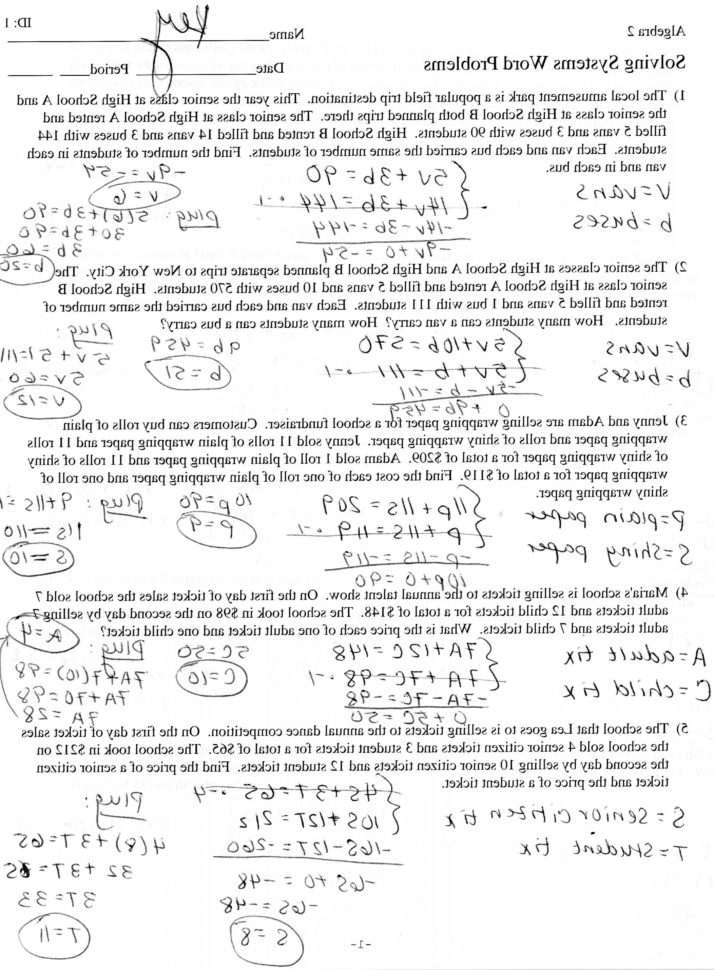 Algebra 2
Name Key
ID: 1
Solving Systems Word Problems
Date Period
1) The local amusement park is a popular field trip destination. This year the senior class at High School A and
the senior class at High School B both planned trips there. The senior class at High School A rented and
filled 5 vans and 3 buses with 90 students. High School B rented and filled 14 vans and 3 buses with 144
students. Each van and each bus carried the same number of students. Find the number of students in each
van and in each bus.
V=vans
b=buses
5v+3b=90
14v+3b=144 ·-1
-14v-3b=-144
-9v+0=-54
-9v=-54
v=6
plug: 5(6)+3b=90
30+3b=90
3b=60
b=20
2) The senior classes at High School A and High School B planned separate trips to New York City. The
senior class at High School A rented and filled 5 vans and 10 buses with 570 students. High School B
rented and filled 5 vans and 1 bus with 111 students. Each van and each bus carried the same number of
students. How many students can a van carry? How many students can a bus carry?
V=vans
b=buses
5v+10b=570
5v+b=111 ·-1
-5v-b=-111
0+9b=459
9b=459
b=51
plug:
5v+51=111
5v=60
v=12
3) Jenny and Adam are selling wrapping paper for a school fundraiser. Customers can buy rolls of plain
wrapping paper and rolls of shiny wrapping paper. Jenny sold 11 rolls of plain wrapping paper and 11 rolls
of shiny wrapping paper for a total of $209. Adam sold 1 roll of plain wrapping paper and 11 rolls of shiny
wrapping paper for a total of $119. Find the cost each of one roll of plain wrapping paper and one roll of
shiny wrapping paper.
P=plain paper
S=Shiny paper
11p+11s=209
p+11s=119 ·-1
-p-11s=-119
10p+0=90
10p=90
p=9
plug: 9+11s=
11s=110
S=10
4) Maria's school is selling tickets to the annual talent show. On the first day of ticket sales the school sold 7
adult tickets and 12 child tickets for a total of $148. The school took in $98 on the second day by selling 7
adult tickets and 7 child tickets. What is the price each of one adult ticket and one child ticket?
A=adult tix
C=child tix
7A+12C=148
7A+7C=98 ·-1
-7A-7C=-98
0+5C=50
5C=50
C=10
plug:
7A+7(10)=98
7A+70=98
7A=28
A=4
5) The school that Lea goes to is selling tickets to the annual dance competition. On the first day of ticket sales
the school sold 4 senior citizen tickets and 3 student tickets for a total of $65. The school took in $212 on
the second day by selling 10 senior citizen tickets and 12 student tickets. Find the price of a senior citizen
ticket and the price of a student ticket.
S=senior citizen tix
T=student tix
4S+3T=65 ·-4
10S+12T=212
-16S-12T=-260
-6S+0=-48
-6S=-48
S=8
plug:
4(8)+3T=65
32+3T=65
3T=33
T=11
-1-